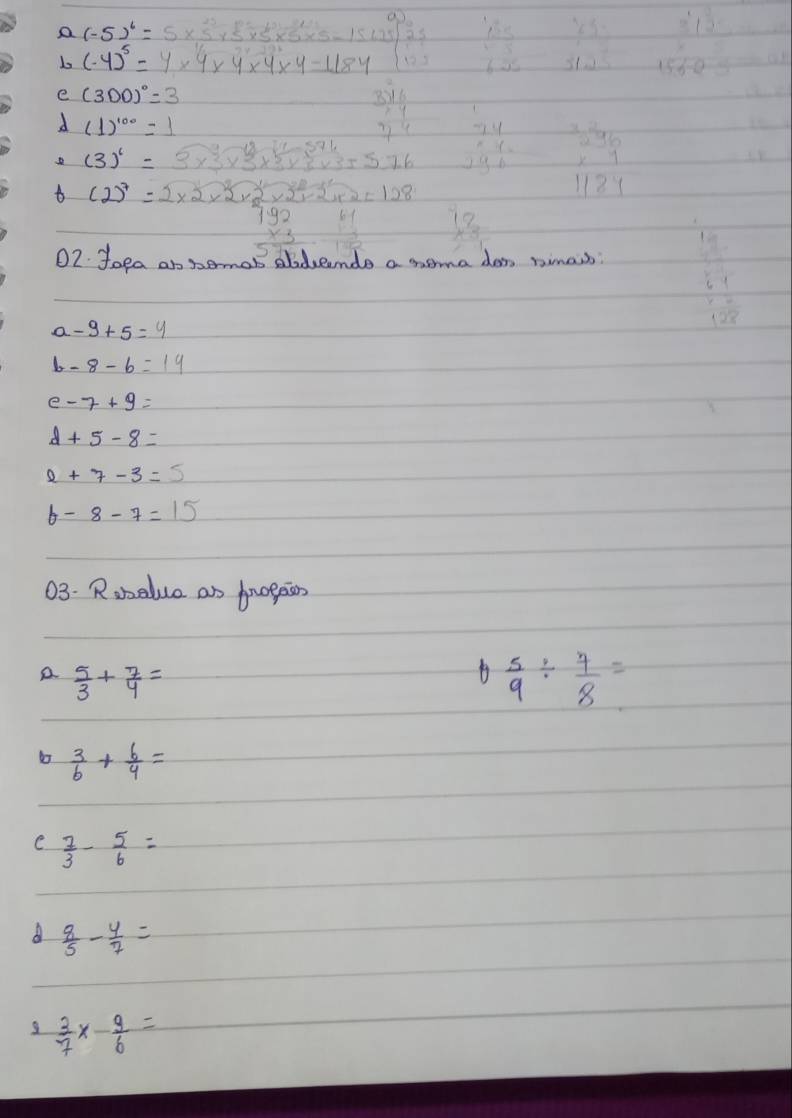 a (-5)⁶ = 5 x 5 x 5 x 5 x 5 x 5 = 15625
b (-4)⁵ = 4 x 4 x 4 x 4 x 4 = 1184
c (300)⁰ = 3
d (1)¹⁰⁰ = 1
e (3)⁶ = 3 x 3 x 3 x 3 x 3 x 3 = 576
f (2)⁷ = 2 x 2 x 2 x 2 x 2 x 2 x 2 = 128
296
x 4
1184
192
x 3
02. Faça as somas obdecendo a soma dos sinais:
64
128
a - 9 + 5 = 4
b - 8 - 6 = 14
c - 7 + 9 =
d + 5 - 8 =
e + 7 - 3 = 5
f - 8 - 7 = 15
03 - Resolva as frações
a 5/3 + 7/4 =
f 5/9 ÷ 7/8 =
b 3/6 + 6/4 =
c 7/3 - 5/6 =
d 8/5 - 4/7 =
e 3/7 x 9/6 =